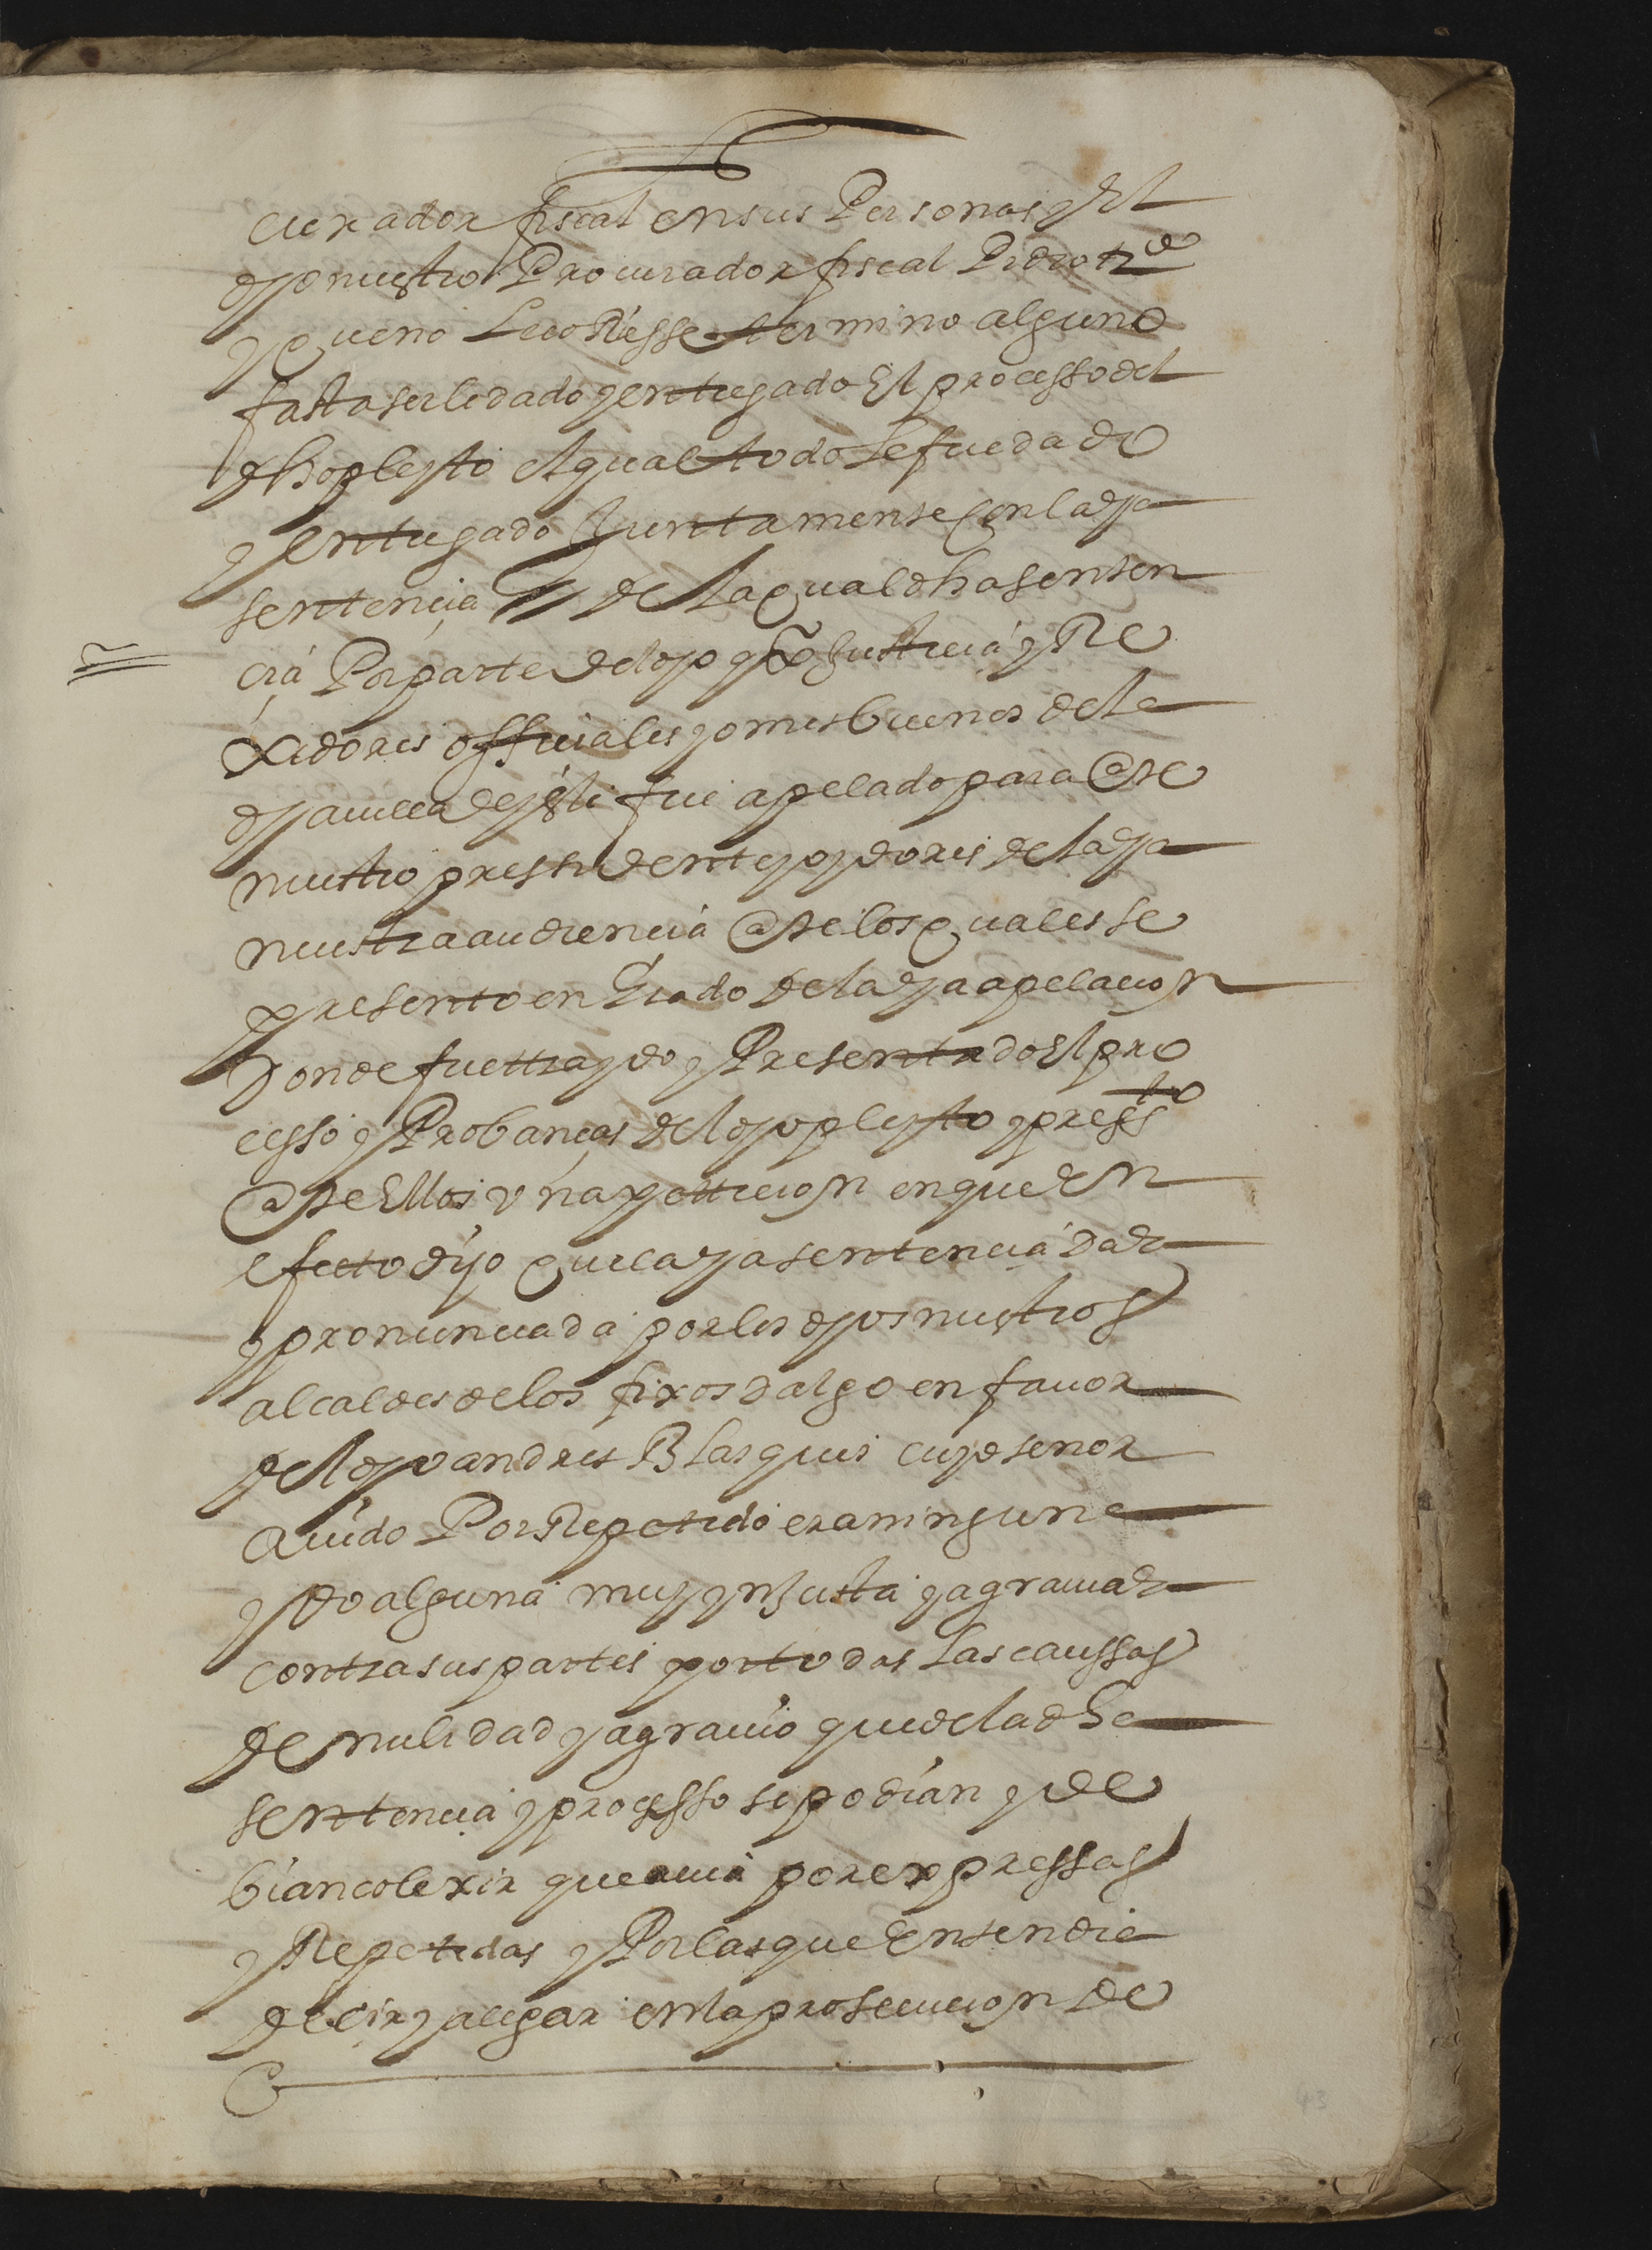 curador fiscal en sus Personas y El
dho nuestro Procurador fiscal Pidio tr.do
y que no le corriesse termino alguno
fasta serle dado y entregado El processo del
dho pleyto El qual todo le fue dado
y entregado Juntamente Con la dha
sentencia de la qual dha senten
cia Por parte del dho Justicia y Re
xidores officiales y omes buenos de la
dha villa de fue apelado para Ante
nuestro pressidente y oydores de la dha
nuestra audiencia Ante los quales se
presento en Grado de la dha apelacion
Donde fue ttraydo y Presentado El pro
cesso y Probanças del dho pleyto y press.to
Ante Ellos vna petticion en que En
efecto dijo que la dha sentencia Dada
y pronunciada por los dhos nuestros
alcaldes de los fixosdalgo en fauor
del dho andres Blasques cuyo tenor
Auido Por Repetido era ninguna
y Do alguna muy ynjusta y agrauiada
contra sus partes por todas Las caussas
de nulidad y agrauio que de la dha
sentencia y processo se podian y de
bian colexir que auia por expressas
y Repetidas y Por las que Entendia
decir y alegar en la prosecucion de
43